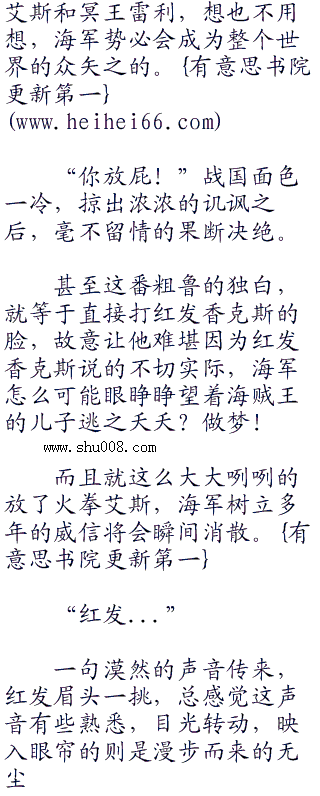 艾斯和冥王雷利，想也不用
想，海军势必会成为整个世
界的众矢之的。{有意思书院
更新第一}
(www.heihei66.com)
“你放屁！”战国面色
一冷，掠出浓浓的讥讽之
后，毫不留情的果断决绝。
甚至这番粗鲁的独白，
就等于直接打红发香克斯的
脸，故意让他难堪因为红发
香克斯说的不切实际，海军
怎么可能眼睁睁望着海贼王
的儿子逃之夭夭？做梦！
www.shu008.com
而且就这么大大咧咧的
放了火拳艾斯，海军树立多
年的威信将会瞬间消散。{有
意思书院更新第一}
“红发...”
一句漠然的声音传来，
红发眉头一挑，总感觉这声
音有些熟悉，目光转动，映
入眼帘的则是漫步而来的无
尘